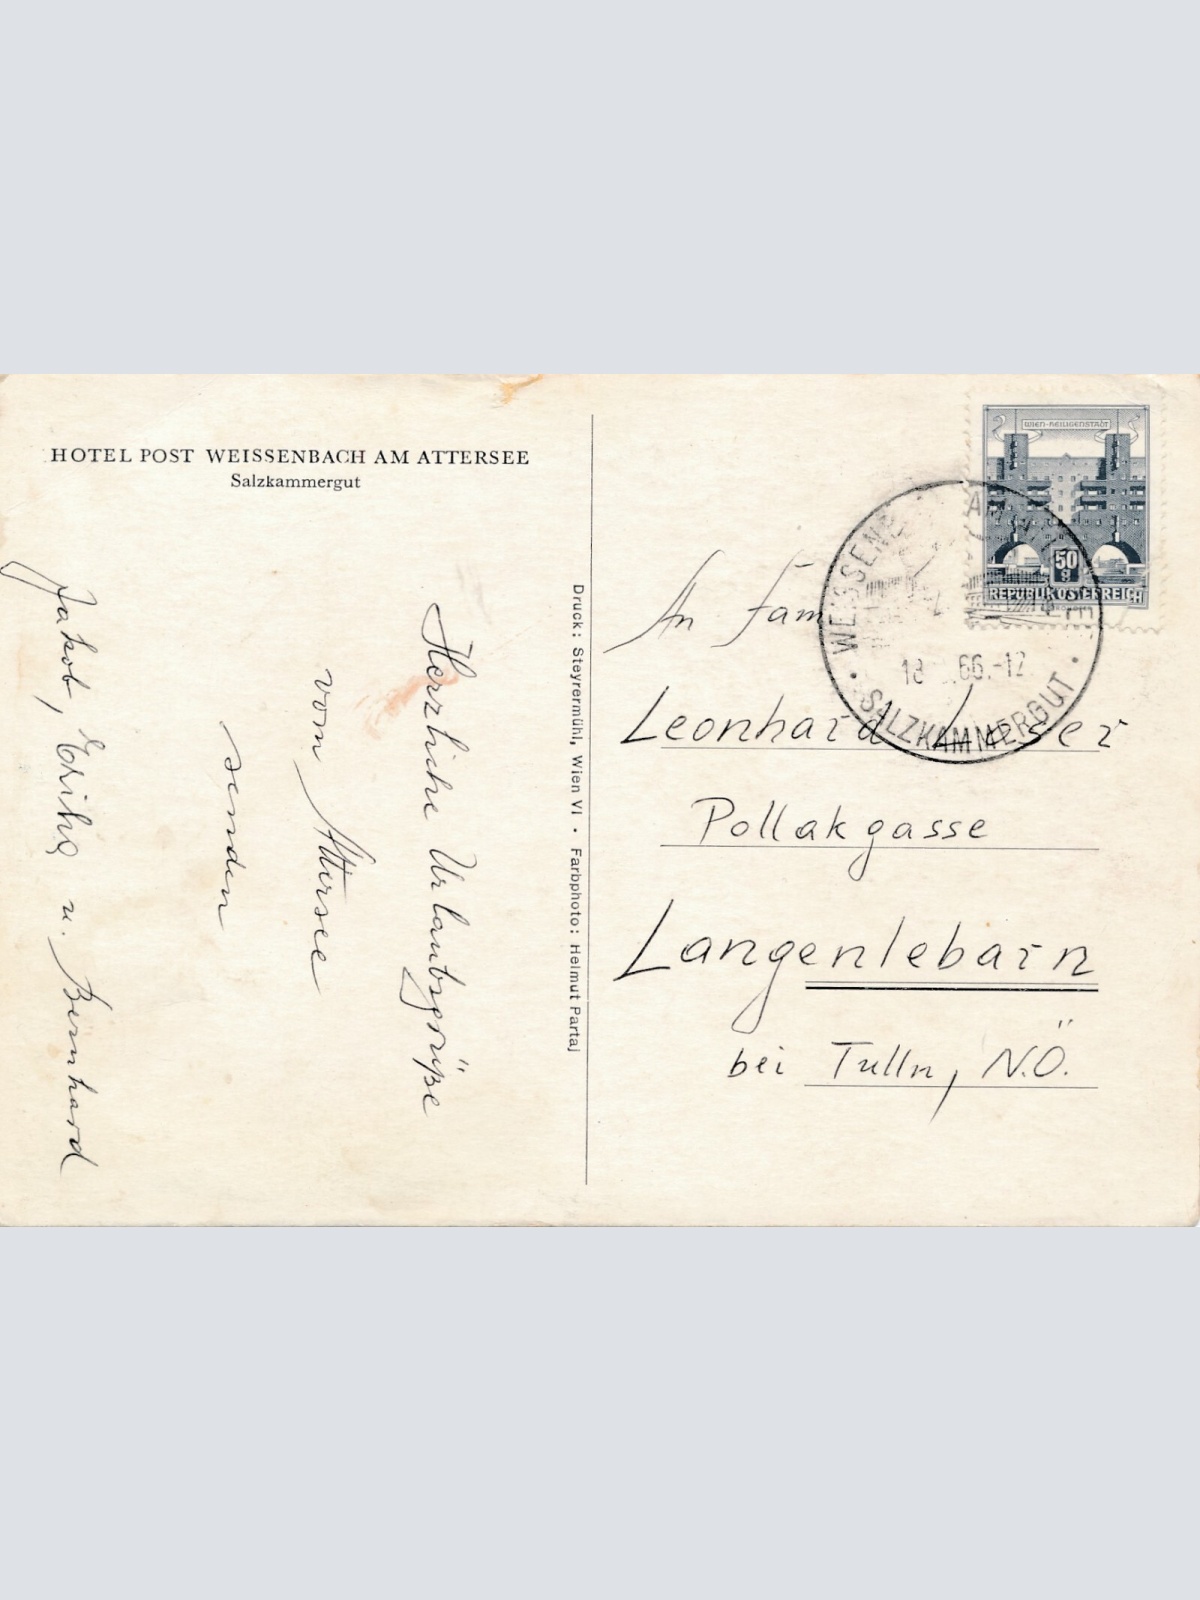 HOTEL POST WEISSENBACH AM ATTERSEE
Salzkammergut
Herzliche Urlaubsgrüße
vom Attersee
senden
Jakob, Erika u. Bernhard
Druck: Steyrermühl, Wien VI • Farbphoto: Helmut Partaj
WIEN-HEILIGENSTADT
50 g
REPUBLIK ÖSTERREICH
WEISSENB
SALZKAMMERGUT
18 .66.-12
An Fam
Leonhard
Pollakgasse
Langenlebarn
bei Tulln, N.Ö.